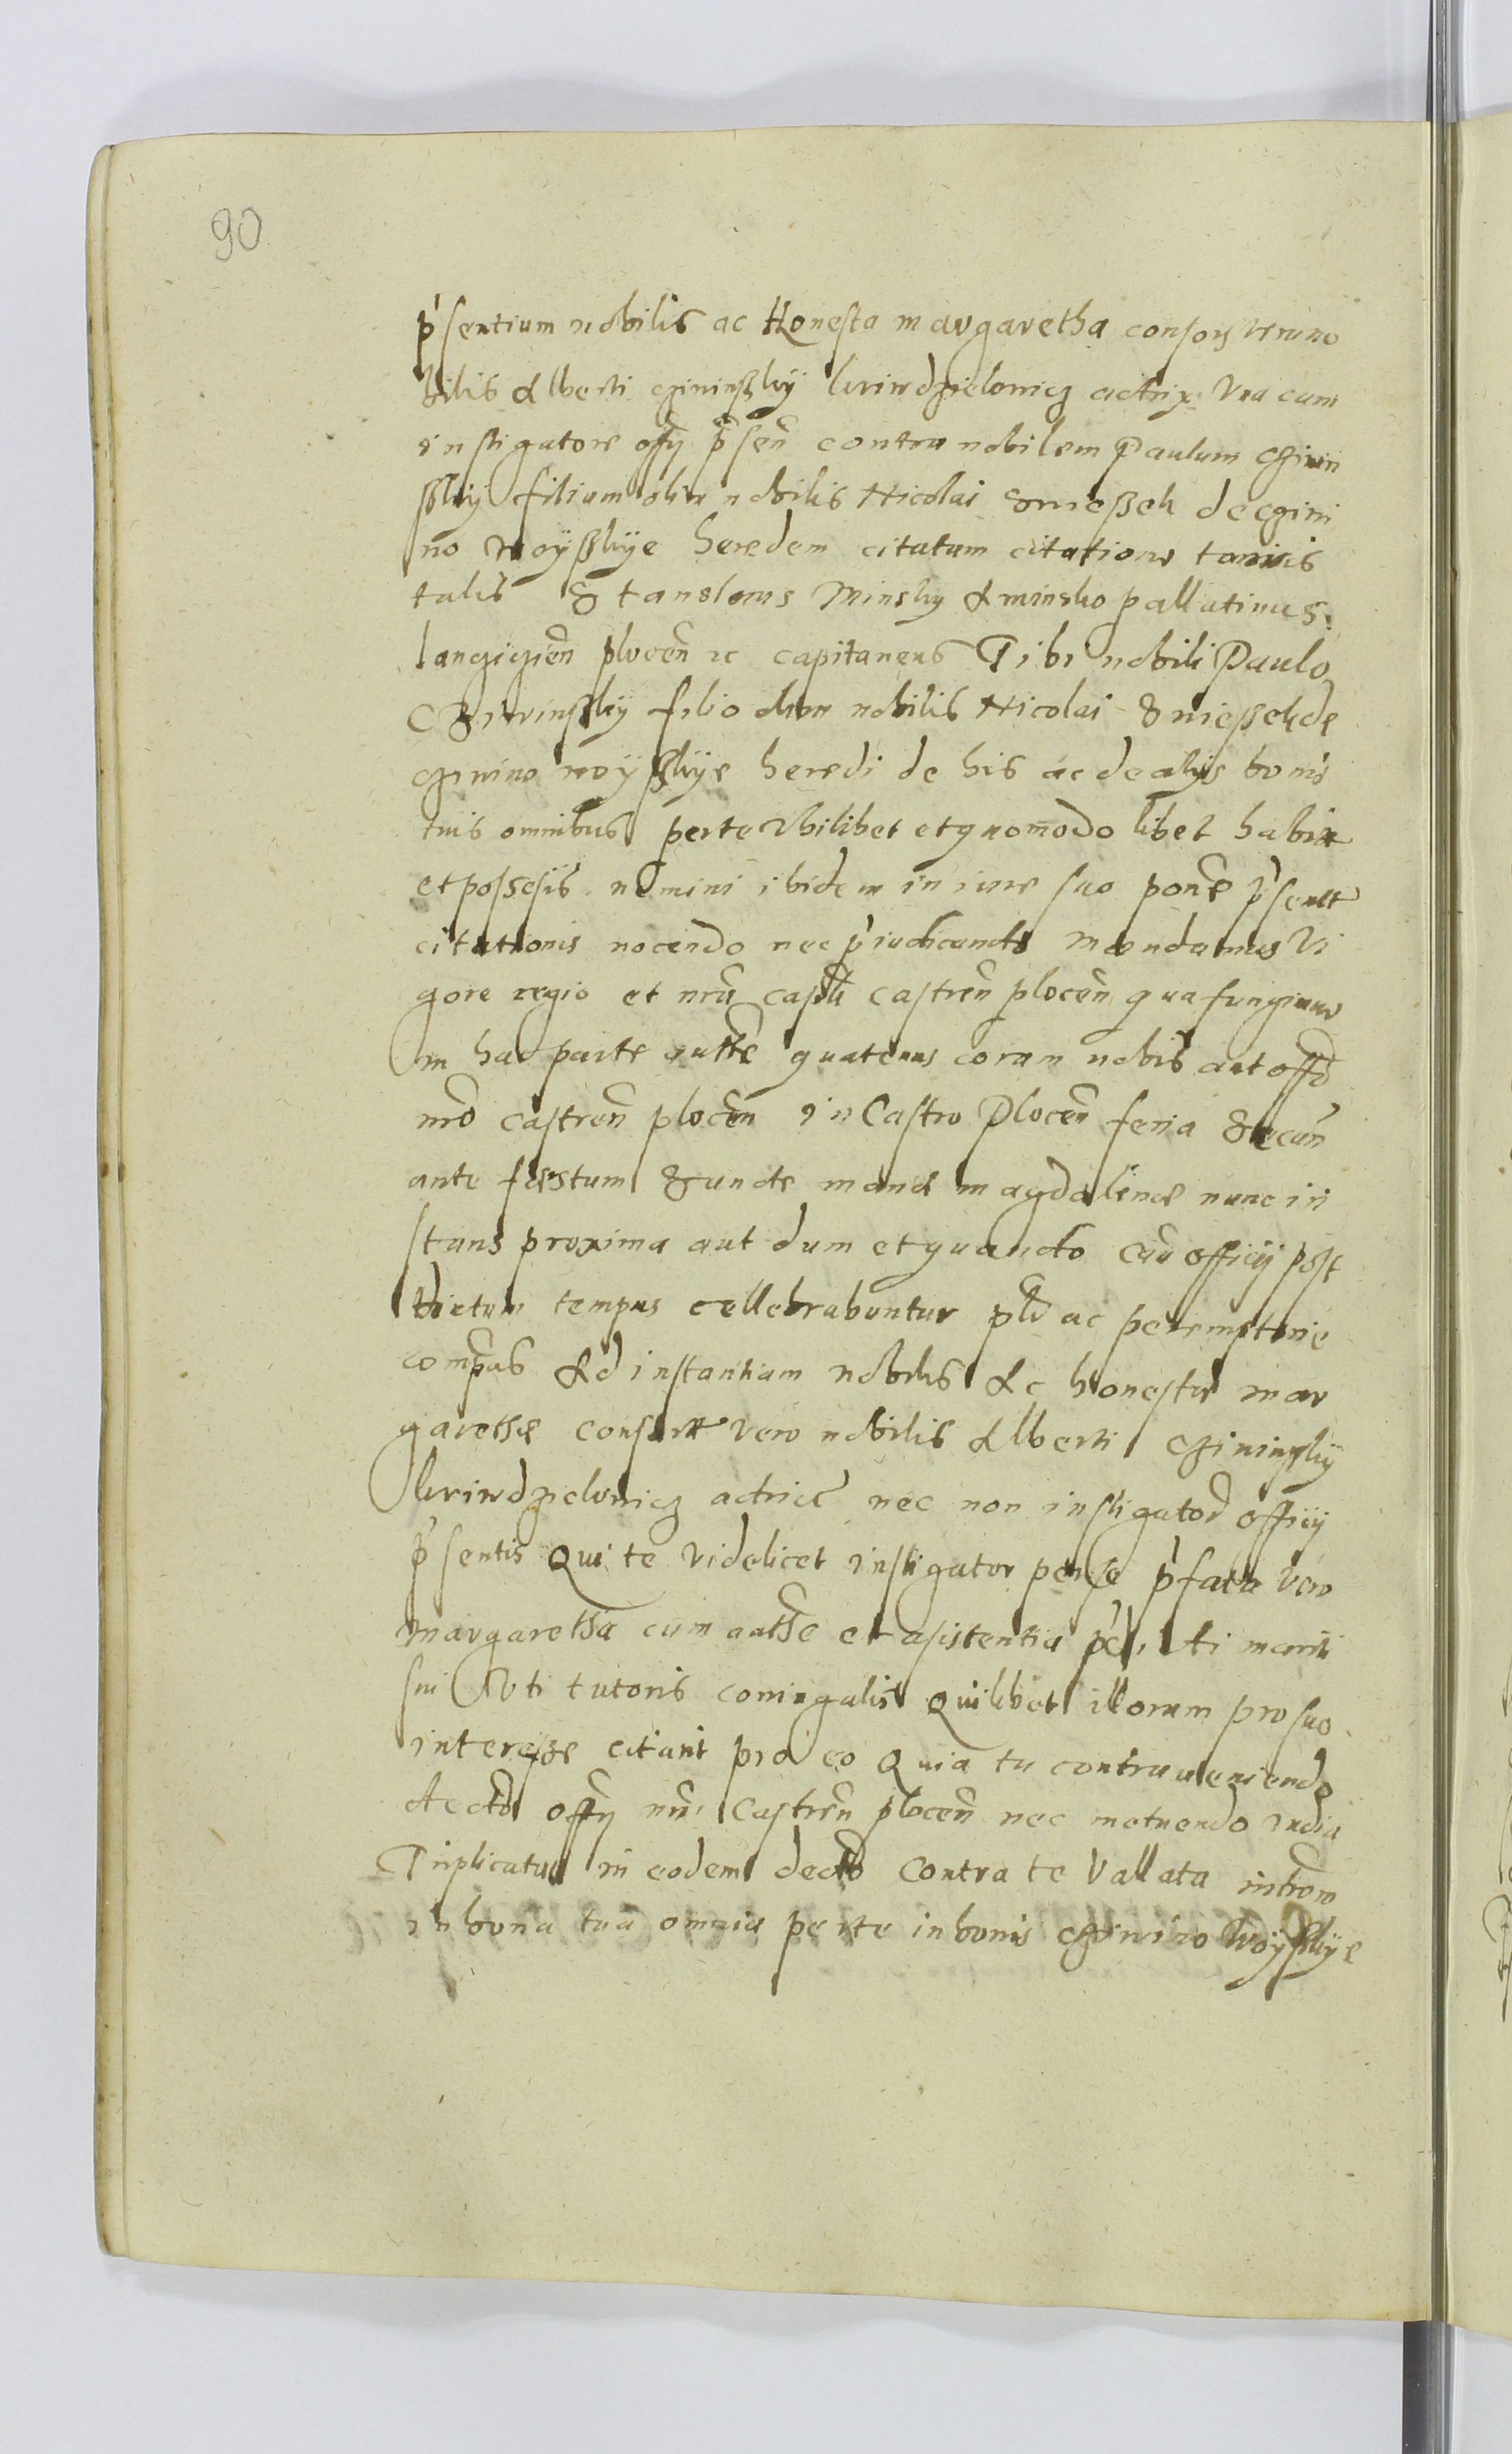 90
p'sentium nobilis ac Honesta margaretha consors vero no
bilis Alberti czininskij kwindzielonicz actrix vna cum
instigatore offij p'sen contra nobilem Paulum czinin
sskij filium olim nobilis Nicolai Smessek de czini
no woysskije heredem citatum citatione
talis Stanslaus Minsky A minsko pallatinus
lanczicien plocen rc capitaneus Tibi nobili Paulo
Czininskij filio olim nobilis Nicolai Smessek de
czinino woysskije heredi de his ac de alijs bonis
tuis omnibus per te vbilibet et quomodo libet habit
et possesis nemini ibidem in iure suo pone p'sent
citationis nocendo nec p'iudicando mandamus vi
gore regio et nru capli castren plocen qua fungimur
in hac parte autte quatenus coram nobis aut offo
nro castren plocen in Castro Plocen feria Secun
ante festum Sancte maria magdalenae nunc in
stans proxima aut dum et quando cau officij post
tempus cellebrabuntur plr ac peremptorie
compas Ad instantiam nobilis Ac honestae mar
garethae consort vero nobilis Alberti czininskij
kwindzielonicz actricis nec non instigatoris officij
p'sentis Qui te videlicet instigator per se p'fata vero
margaretha cum autthe et asistentia mariti
sui Vti tutoris coniugalis Quilibet illorum pro suo
interesse citant pro eo Quia tu contraueniendo
decto offij nri Castren plocen nec metuendo vadia
Triplicatus in eodem decto contra te Vallata
in bona tua omnia per te in bonis czinino Woysskije